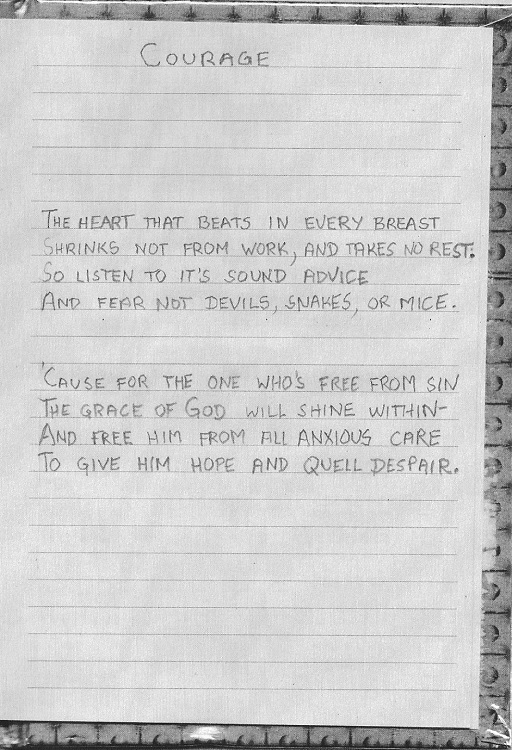 COURAGE
THE HEART THAT BEATS IN EVERY BREAST
SHRINKS NOT FROM WORK, AND TAKES NO REST.
SO LISTEN TO IT'S SOUND ADVICE
AND FEAR NOT DEVILS, SNAKES, OR MICE.
'CAUSE FOR THE ONE WHO'S FREE FROM SIN
THE GRACE OF GOD WILL SHINE WITHIN-
AND FREE HIM FROM ALL ANXIOUS CARE
TO GIVE HIM HOPE AND QUELL DESPAIR.